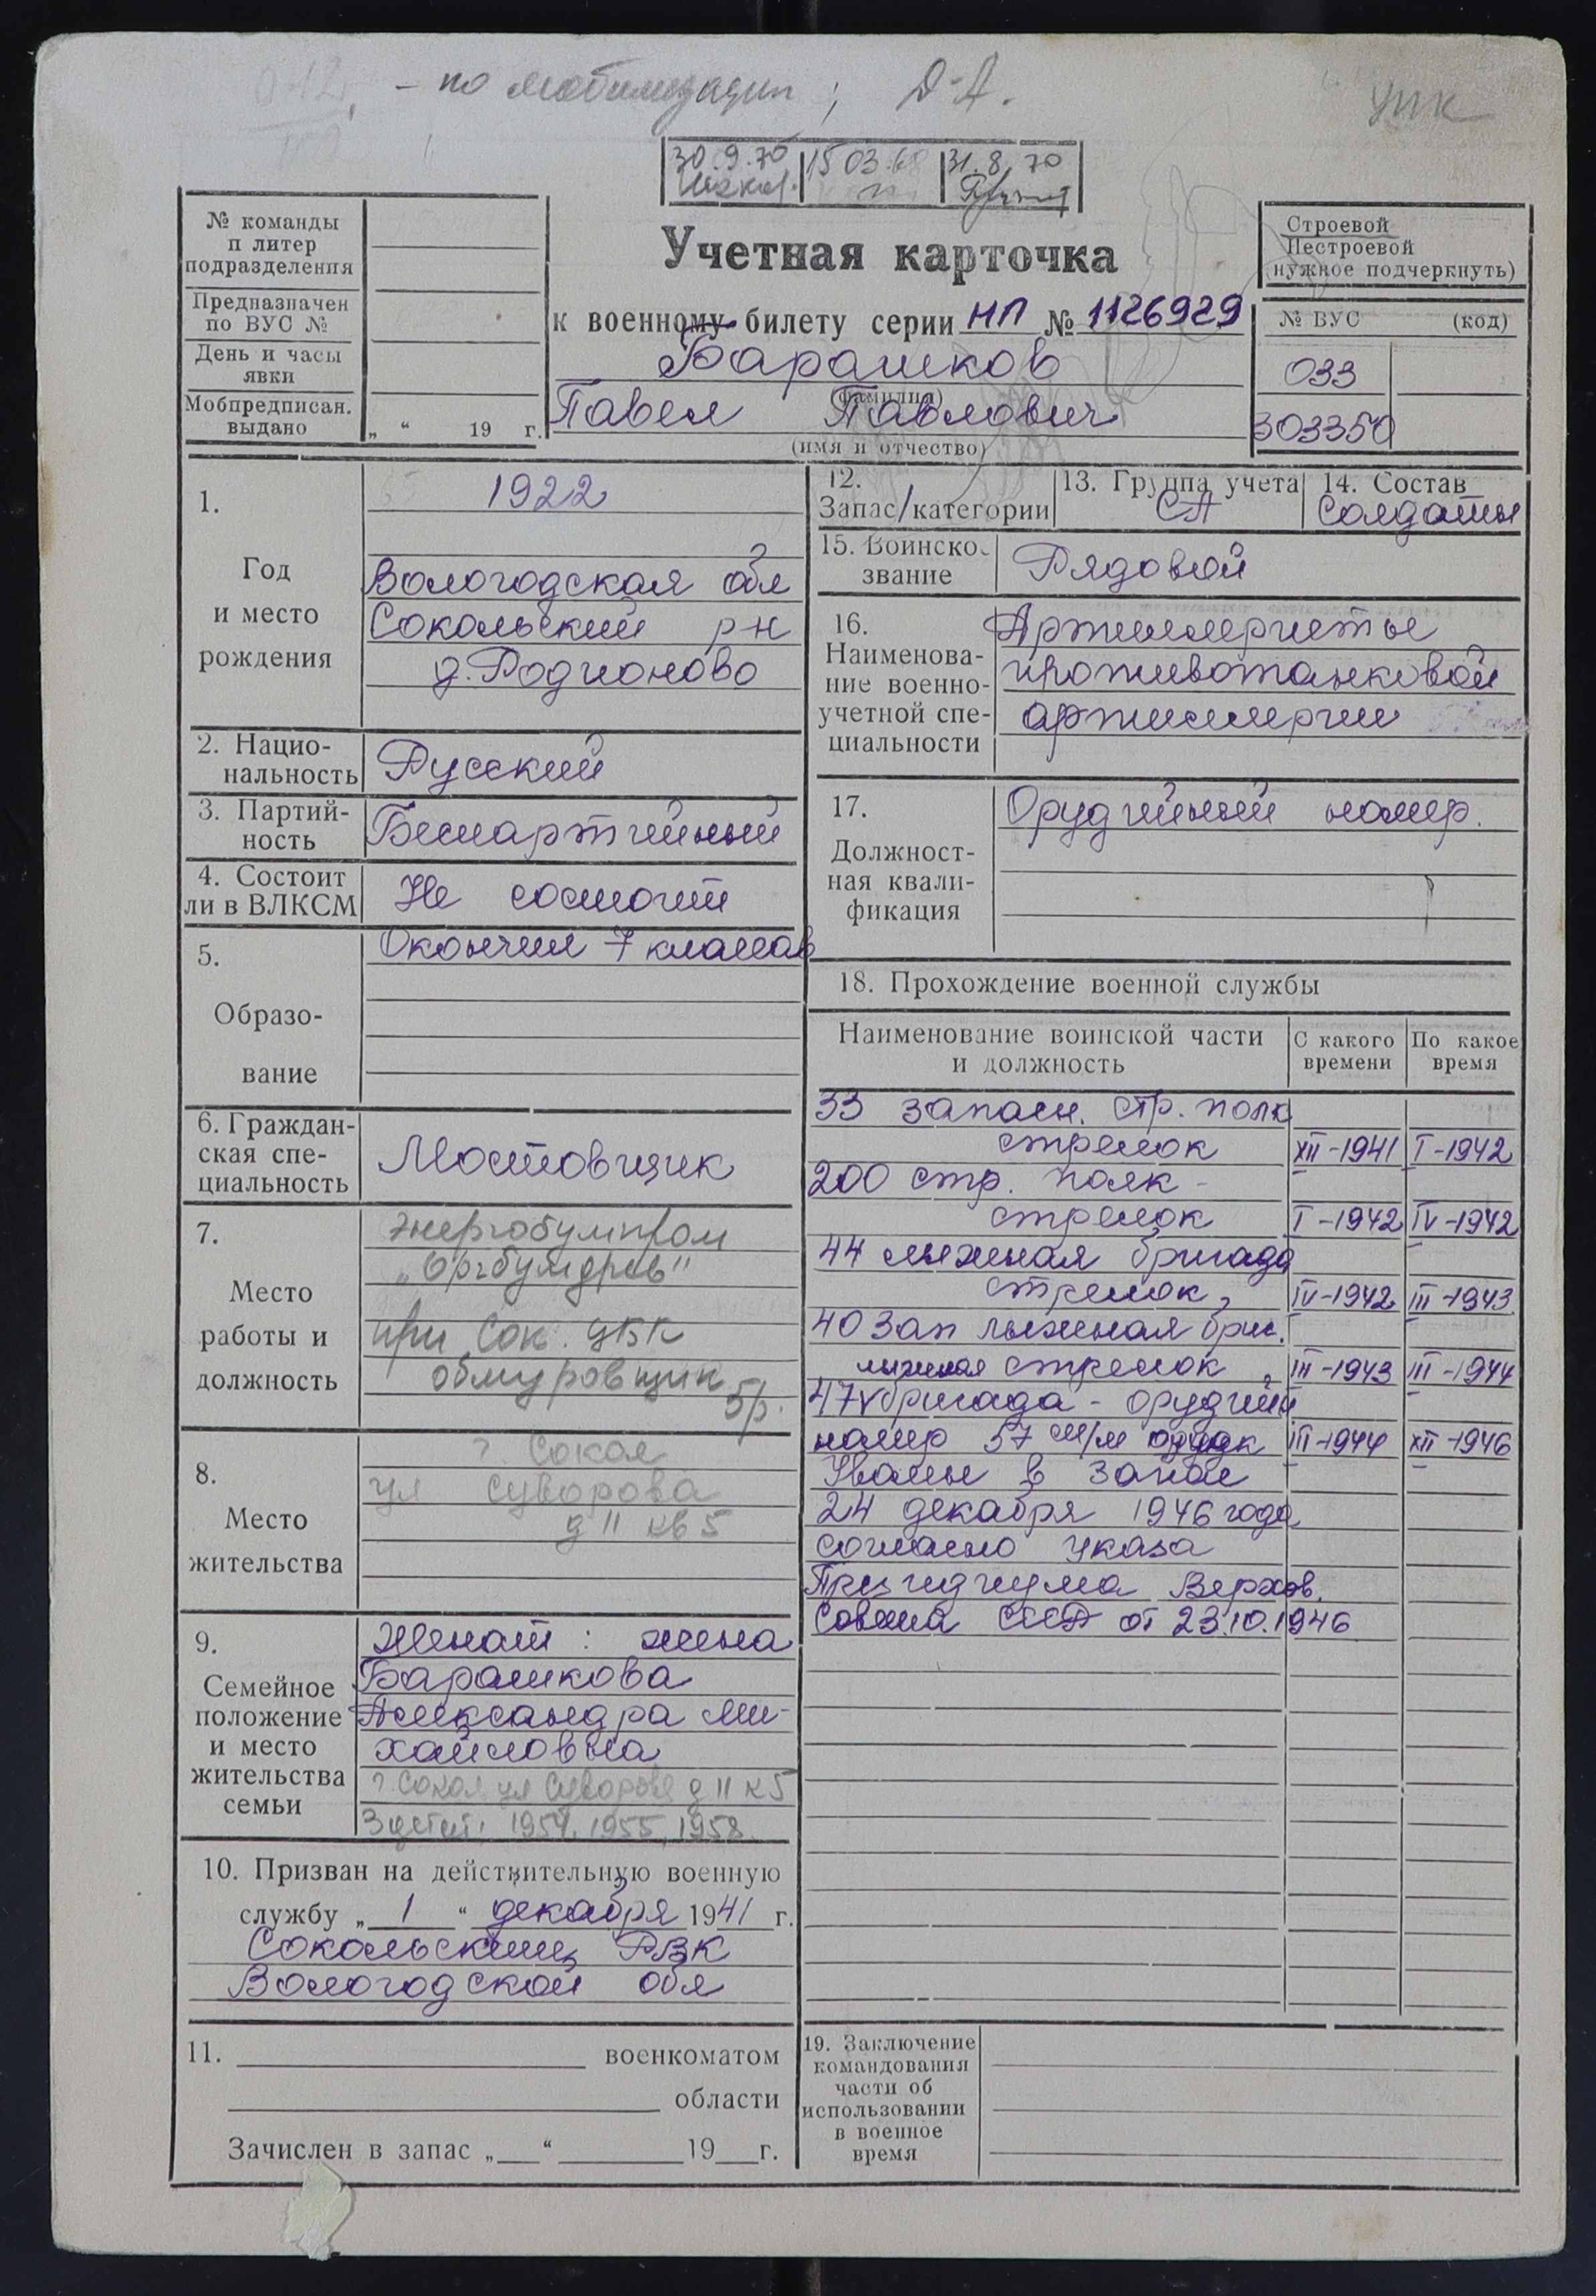 - по мобилизации ; Д-А.
УПК
30.9.70 15 03.68 31.8.70
№ команды
п литер
подразделения
Предназначен
по ВУС №
День и часы
явки
Мобпредписан.
выдано
„ “ 19 г.
Учетная карточка
к военному билету серии НП № 1126929
Барашков
(фамилия)
Павел Павлович
(имя и отчество)
Строевой
Нестроевой
(нужное подчеркнуть)
№ ВУС (код)
033
303350
1.
Год
и место
рождения
1922
Вологодская обл
Сокольский р-н
д. Родионово
2. Нацио-
нальность
Русский
3. Партий-
ность
Беспартийный
4. Состоит
ли в ВЛКСМ
Не состоит
5.
Образо-
вание
Окончил 7 классов
6. Граждан-
ская спе-
циальность
Мостовщик
7.
Место
работы и
должность
Энергобумпром
„Оргбумдрев"
при Сок. ЦБК
обмуровщик
5р.
8.
Место
жительства
г Сокол
ул Суворова
д 11 кв 5
9.
Семейное
положение
и место
жительства
семьи
Женат : жена
Барашкова
Александра Ми-
хайловна
г. Сокол ул Суворова д 11 к 5
3 детей: 1954, 1955, 1958.
10. Призван на действительную военную
службу „ 1 “ декабря 1941 г.
Сокольским РВК
Вологодской обл
11. военкоматом
области
Зачислен в запас „ “ 19 г.
12.
Запас/категории
13. Группа учета
СА
14. Состав
Солдаты
15. Воинско.
звание
Рядовой
16.
Наименова-
ние военно-
учетной спе-
циальности
Артиллеристы
противотанковой
артиллерии
17.
Должност-
ная квали-
фикация
Орудийный номер.
18. Прохождение военной службы
Наименование воинской части
и должность
С какого
времени
По какое
время
33 запасн. стр. полк
стрелок XII-1941 I-1942
200 стр. полк -
стрелок I-1942 IV-1942
44 лыжная бригада
стрелок, IV-1942 III-1943
40 зап лыжная бриг.
лыжная стрелок, III-1943 III-1944
47 бригада - орудийн
номер 57 м/м III-1944 XII-1946
Уволен в запас
24 декабря 1946 года
согласно указа
Президиума Верхов.
Совета СССР от 23.10.1946
19. Заключение
командования
части об
использовании
в военное
время